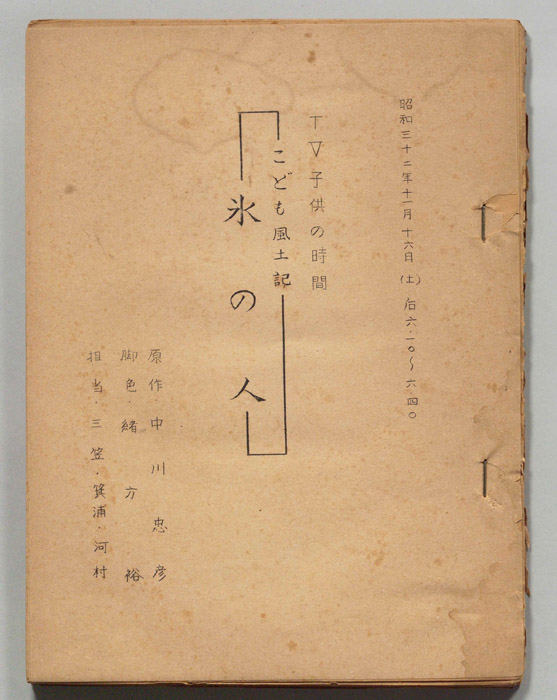 昭和三十二年十一月十六日（土）后六.一〇～六.四〇
TV子供の時間
こども風土記
氷の人
原作・中川忠彦
脚色・緒方裕
担当・三笠・箕浦・河村